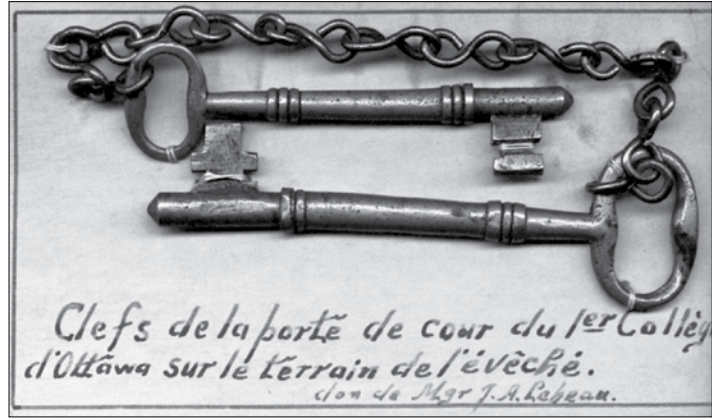 Clefs de la porte de cour du 1er Collèg
d'Ottawa sur le terrain de l'évêché.
don de Mgr J. A. Lebeau.